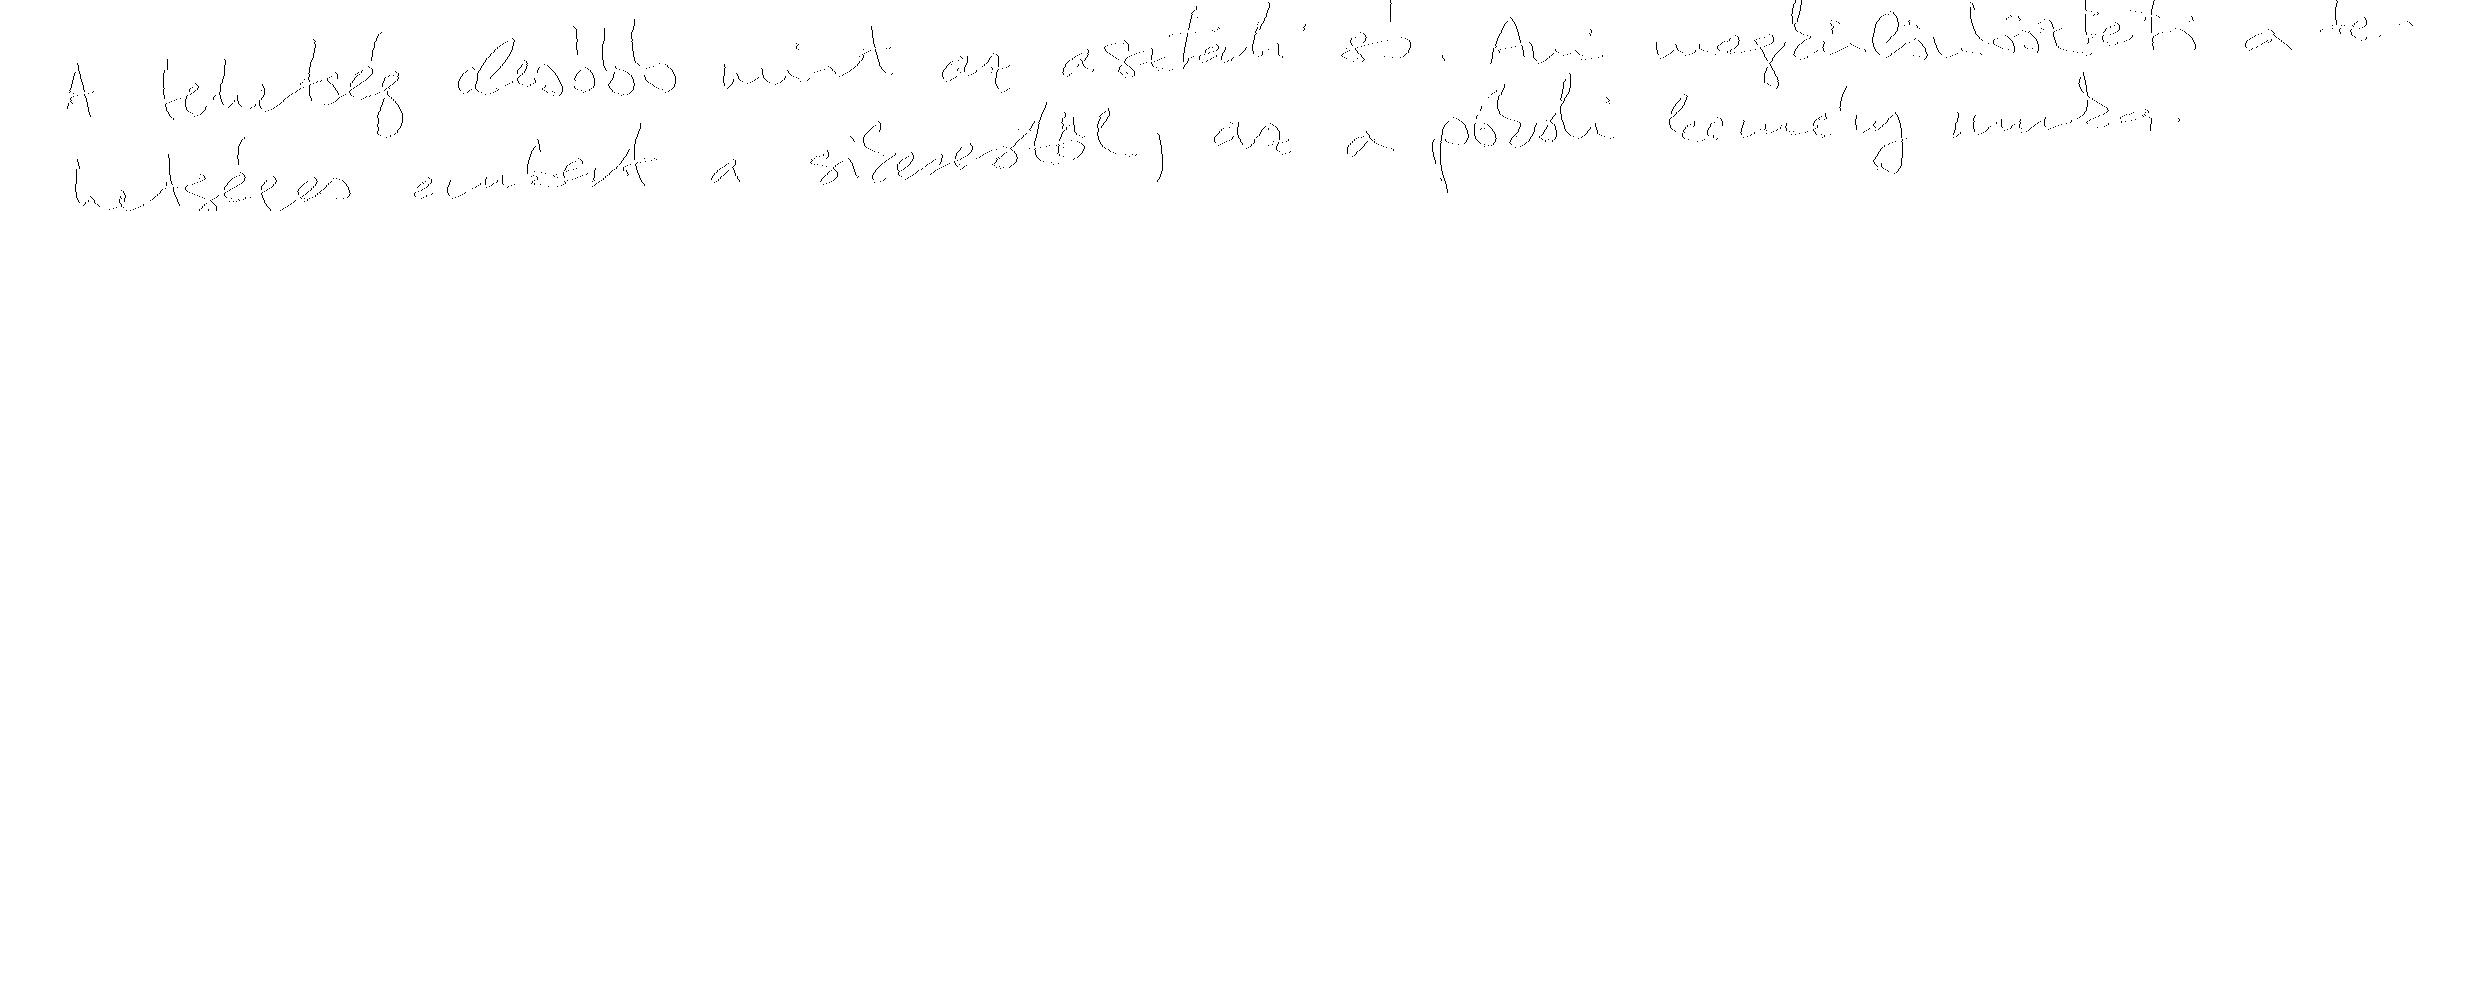 A tehetség olcsóbb mint az asztali só. Ami megkülönbözteti a te-
hetséges embert a sikerestől, az a póri kemény munka.